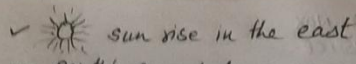 sun rise in the east